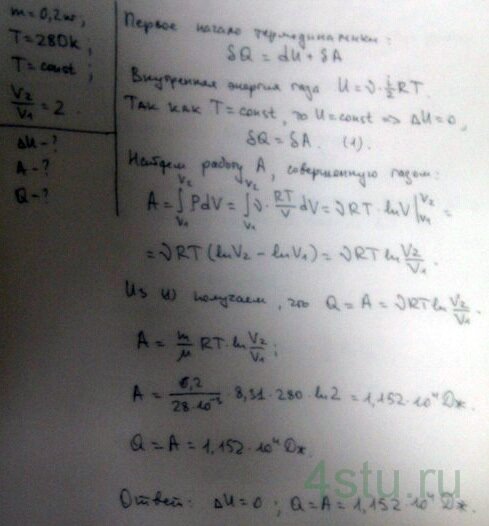 m=0,2кг;
T=280K;
T=const;
V2/V1=2.
ΔU-?
A-?
Q-?
Первое начало термодинамики:
δQ=dU+δA
Внутренняя энергия газа U=ν·i/2RT.
Так как T=const, то U=const => ΔU=0,
δQ=δA. (1).
Найдем работу A, совершенную газом:
A=∫V1V2 PdV=∫V1V2 ν·RT/V dV=νRT·lnV|V1V2=
=νRT(lnV2-lnV1)=νRT ln V2/V1.
Из (1) получаем, что Q=A=νRT ln V2/V1.
A=m/μ RT·ln V2/V1;
A=0,2/28·10⁻³·8,31·280·ln2=1,152·10⁴Дж.
Q=A=1,152·10⁴Дж.
Ответ: ΔU=0; Q=A=1,152·10⁴Дж.
4stu.ru